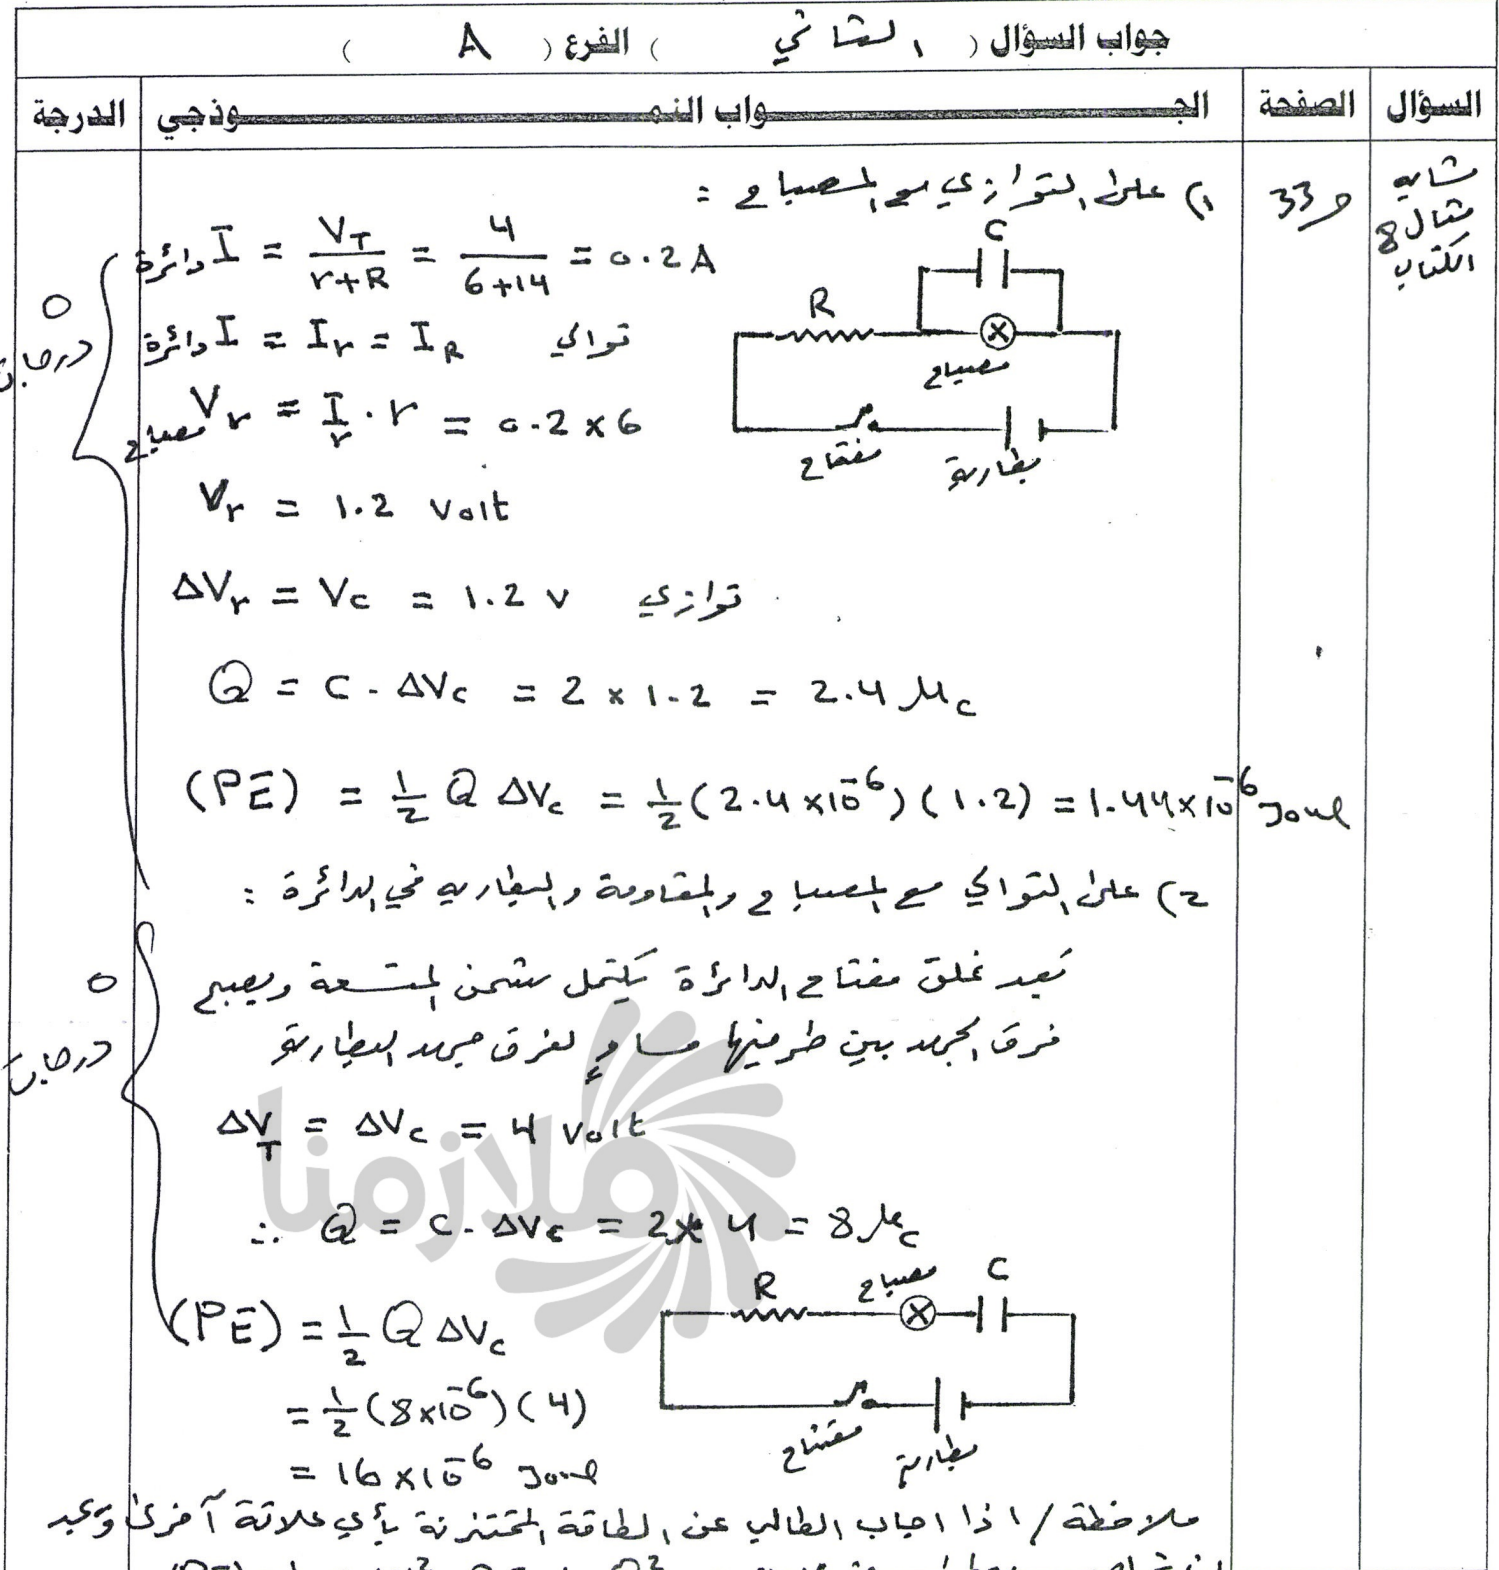 جواب السؤال ( الثاني ) الفرع ( A )
السؤال الصفحة الجـواب النمـوذجي الدرجة
مشابه مثال 8 الكتاب
ص 33
1) على التوازي مع المصباح :
I دائرة = V_T / r+R = 4 / 6+14 = 0.2 A
I دائرة = I_r = I_R توالي
V_r مصباح = I_r . r = 0.2 x 6
V_r = 1.2 Volt
ΔV_r = V_C = 1.2 v توازي
Q = C . ΔV_C = 2 x 1.2 = 2.4 μc
(PE) = 1/2 Q ΔV_C = 1/2 (2.4 x10^-6) (1.2) = 1.44 x 10^-6 Joul
5 درجات
C
R
مصباح
مفتاح
بطارية
2) على التوالي مع المصباح والمقاومة والبطارية في الدائرة :
بعد غلق مفتاح الدائرة يكتمل شحن المتسعة ويصبح
فرق الجهد بين طرفيها مساوٍ لفرق جهد البطارية
ΔV_T = ΔV_C = 4 Volt
∴ Q = C . ΔV_C = 2 x 4 = 8 μc
(PE) = 1/2 Q ΔV_C
= 1/2 (8x10^-6) (4)
= 16 x10^-6 Joul
5 درجات
R مصباح C
مفتاح
بطارية
ملاحظة / اذا اجاب الطالب عن الطاقة المختزنة بأي علاقة أخرى
ملازمنا